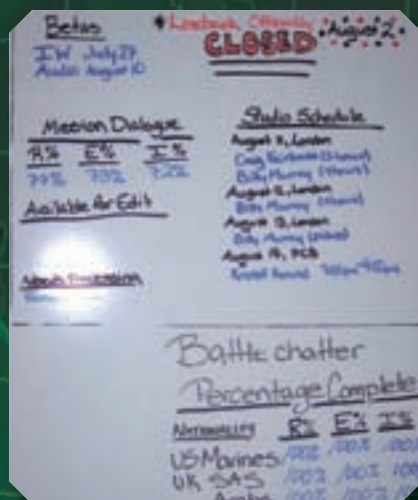 Betas
IW July 27
Audio August 10
* Lockbook Officially
CLOSED
August 2
Mission Dialogue
R% E% I%
Available for Edit
Needs Processing
Studio Schedule
August 11, London
Craig Fairbrass (4 hours)
Billy Murray (4 hours)
August 12, London
Billy Murray (4 hours)
August 13, London
Billy Murray
August 14, PCB
Battle chatter
Percentage Complete
NATIONALITY R% E% I%
US Marines 100% 100% 100
UK SAS 100% 100% 100
Arabs